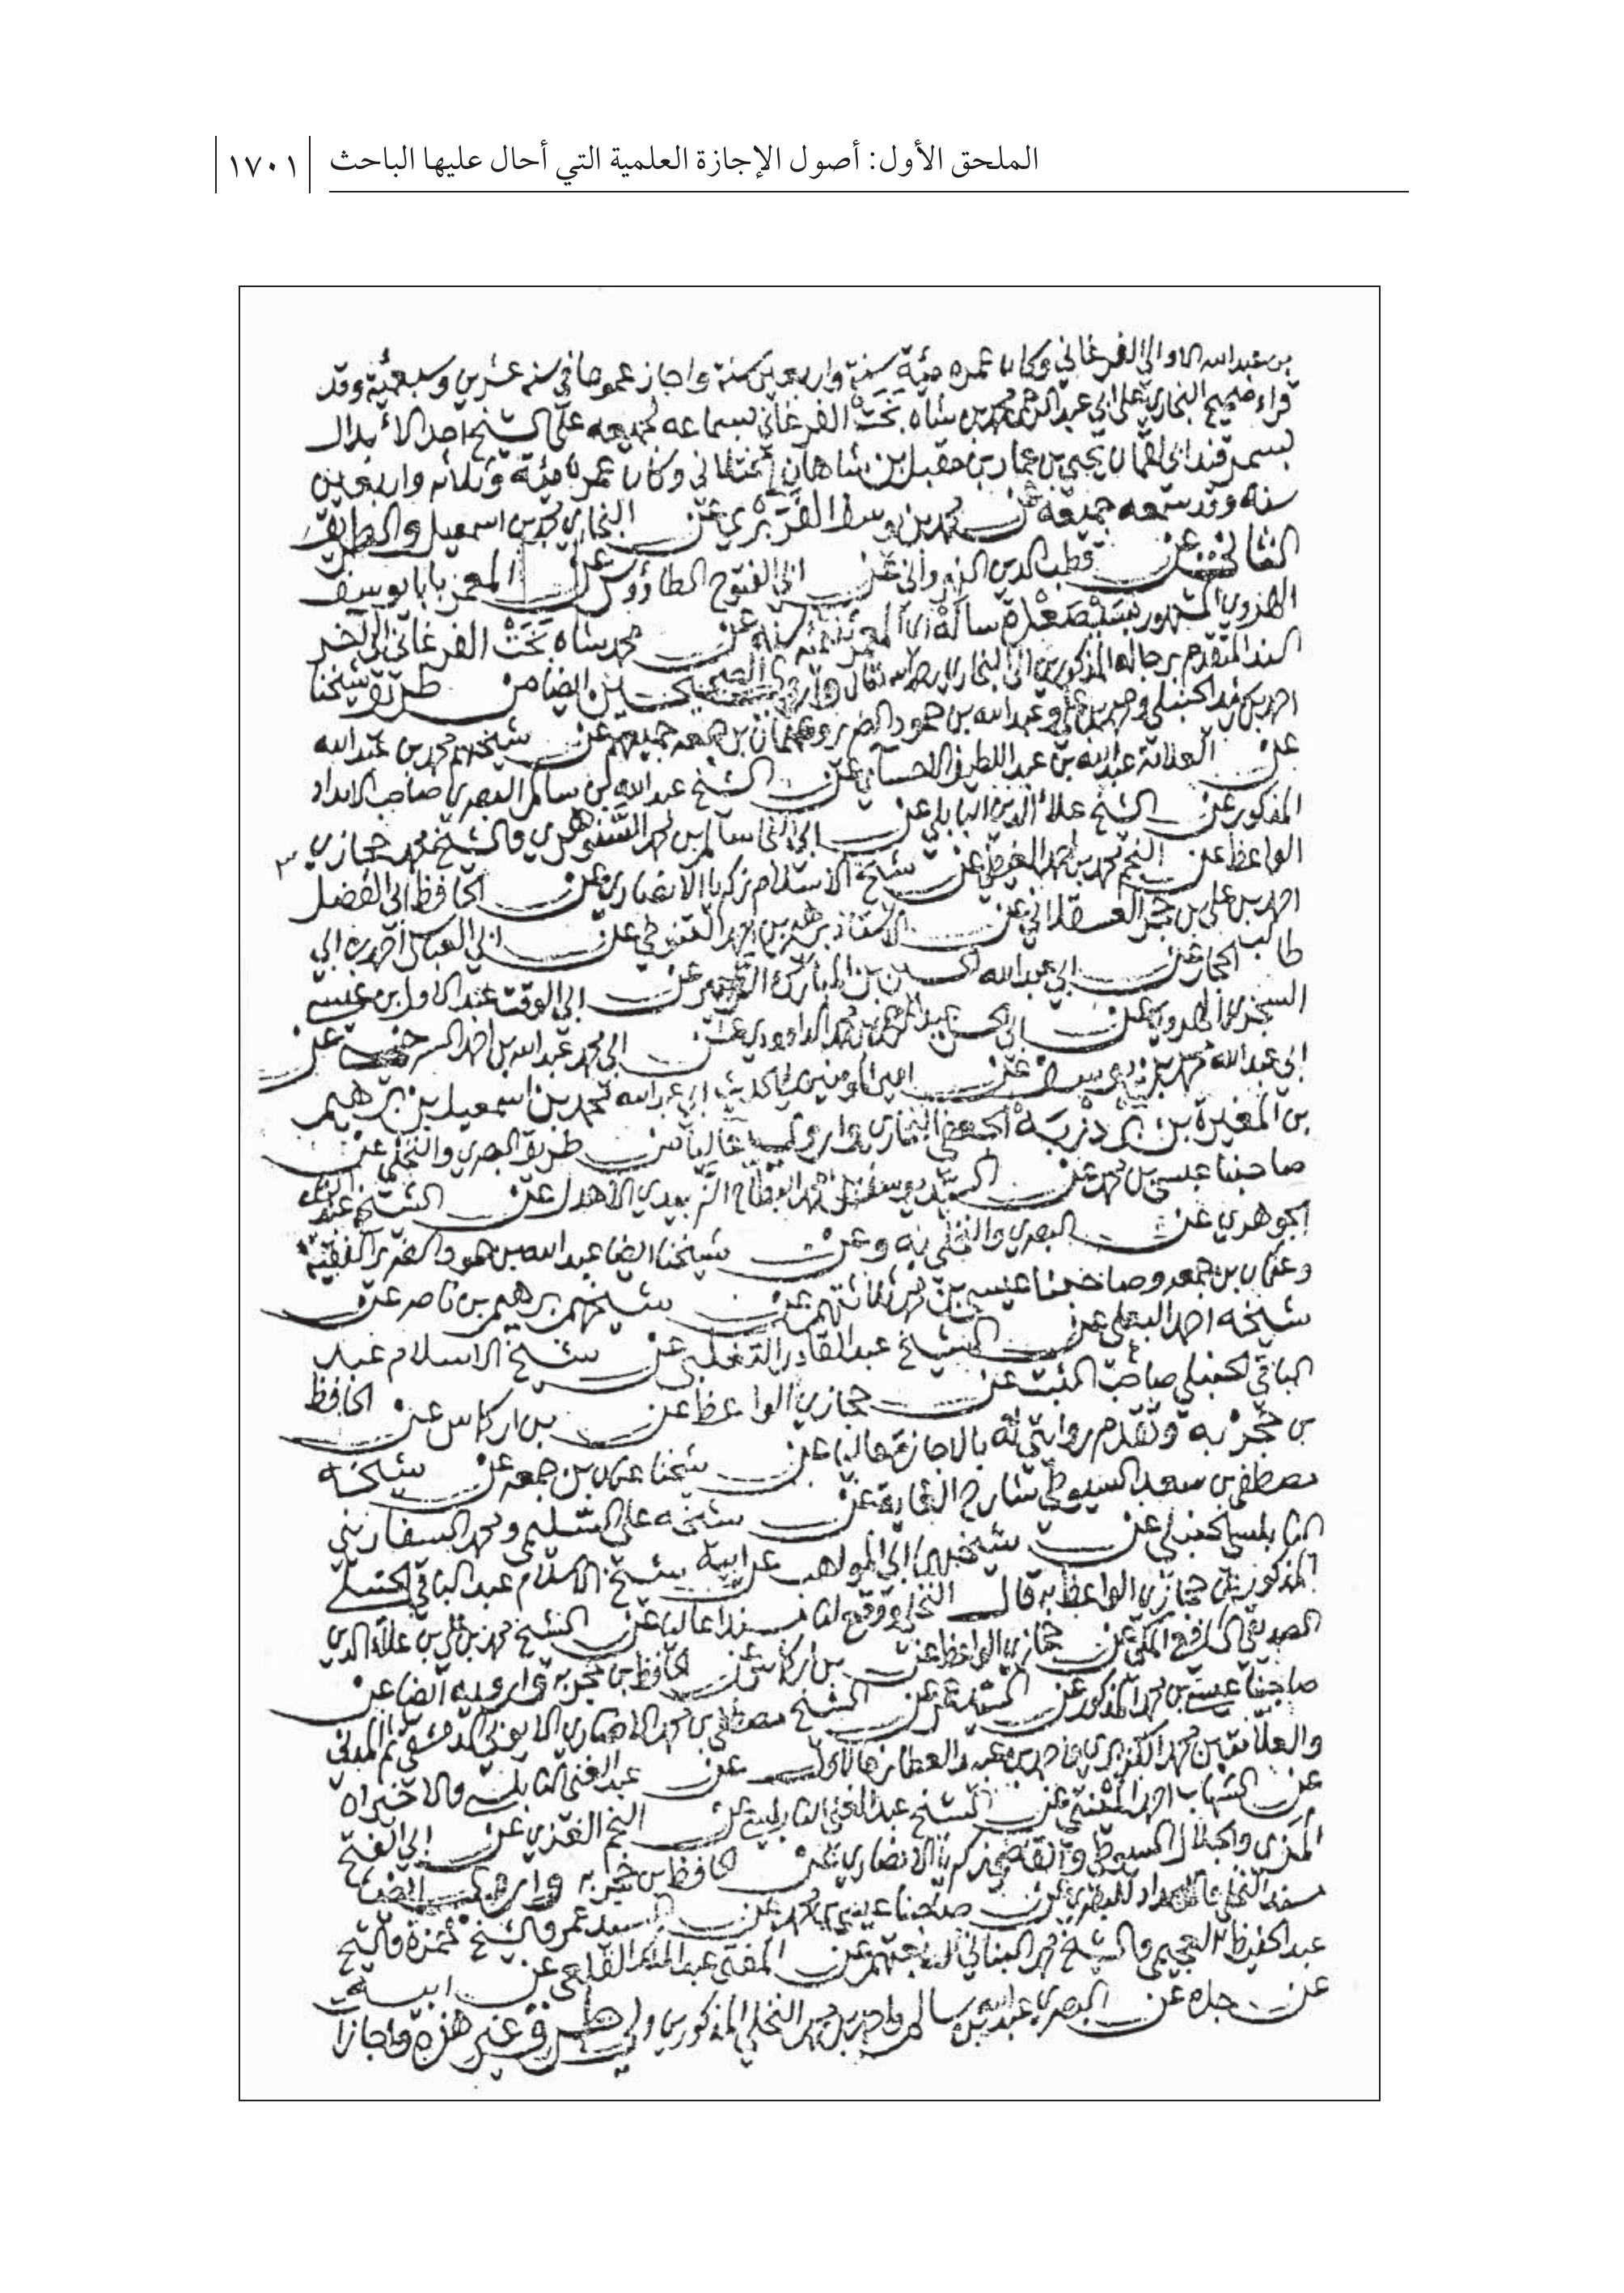 الملحق الأول: أصول الإجازة العلمية التي أحال عليها الباحث
١٧٠١
بن عبدالله الاوالي الفرغاني وكان عمره مئة سنة واربعين سنة واجاز عموما في سنه عشرين وسبعمئة وقد
قراء صحيح البخاري على ابي عبدالرحمن محمد بن شاه بخت الفرغاني بسماعه لجميعه على الشيخ احد الابدال
بسمرقند ابي لقمان يحيى بن عمار بن مقبل بن شاهان الختلاني وكان عمره مئة وثلاثه واربعين
سنه وقد سمعه جميعه عن محمد بن يوسف الفربري عن البخاري محمد بن اسمعيل والطريق
الثاني عن قطب الدين النهرواني عن ابي الفتوح الطاؤوسي عن المعمر بابا يوسف
الهروي المشهور سالة اي المعمر ثلثمئة سنة عن محمد شاه بخت الفرغاني الى آخر
السند المتقدم برجاله المذكورين الى البخاري رحمه الله تعالى واروي الصحيحين ايضا من طريق شيخنا
احمد الحنبلي و وعبدالله بن حمود الضرير وعثمان بن جمعه جميعهم عن شيخهم محمد بن عبدالله
عن العلامة عبدالله بن عبد اللطيف الاحسائي عن الشيخ عبدالله بن سالم البصري صاحب الامداد
المذكور عن الشيخ علاء الدين البابلي عن ابي النجا سالم بن محمد السنهوري والشيخ محمد حجازي
الواعظ عن النجم محمد بن احمد الغيطي عن شيخ الاسلام زكريا الانصاري عن الحافظ ابي الفضل
احمد بن علي بن حجر العسقلاني عن الاستاذ برهيم بن احمد التنوخي عن ابي العباس احمد بن ابي
طالب الحجار عن ابي عبدالله الحسين بن المبارك عن ابي الوقت عبد الاول بن عيسى
السجزي الهروي عن ابي الحسن عبدالرحمن بن محمد الداوودي عن ابي محمد عبدالله بن احمد السرخسي عن
ابي عبدالله محمد بن يوسف عن امير المومنين في الحديث ابي عبدالله محمد بن اسمعيل بن برهيم
بن المغيرة بن بردزبه الجعفي البخاري واروي عاليا من طريق البصري والنخلي عن
صاحبنا عيسى بن محمد عن السيد يوسف بن محمد البطاح الزبيدي الاهدل عن الشيخ
الجوهري عن البصري والنخلي به وعن شيخنا ايضا عبدالله بن حمود الضرير الفقيه
وعثمان بن جمعه وصاحبنا عيسى بن محمد ثلاثتهم عن شيخهم برهيم بن ناصر عن
شيخه احمد البعلي عن الشيخ عبدالقادر التغلبي عن شيخ الاسلام عبد
الباقي الحنبلي صاحب الثبت عن حجازي الواعظ عن بن اركماس عن الحافظ
بن حجر به وتقدم روايتي له بالاجازة عاليا عن شيخنا عثمان بن جمعه عن شيخه
مصطفى بن سعد السيوطي شارح الغاية عن شيخه علي السليمي ومحمد السفاريني
النابلسي الحنبلي عن شيخهما ابي المواهب عن ابيه شيخ الاسلام عبد الباقي الحنبلي
المذكور عن حجازي الواعظ به قال النخلي ووقع لنا سندا عاليا عن الشيخ محمد بن علي بن علاء الدين
الصديقي الشافعي المكي عن حجازي الواعظ عن بن اركماس عن الحافظ بن حجر به وارويه ايضا عن
صاحبنا عيسى بن محمد المذكور عن عن الشيخ مصطفى بن محمد الانصاري الايوبي الدمشقي ثم المدني
والعلامتين محمد الكزبري واحمد بن عبيد العطار فالاول عن عبد الغني النابلسي والاخيران
عن الشهاب احمد المنيني عن الشيخ عبد الغني النابلسي عن النجم الغزي عن ابي الفتح
المزي والجلال السيوطي والقاضي زكريا الانصاري عن الحافظ بن حجر به واروي ايضا
سند النخلي والامداد للبصري عن صاحبنا عيسى بن محمد عن السيد عمر والشيخ حمزة والشيخ
عبد الحفيظ العجيمي والشيخ محمد البناني اربعتهم عن المفتي عبد الملك القلعي عن ابيه
عن جده عن البصري عبدالله بن سالم واحمد بن محمد النخلي المذكورين ولي طرق غير هذه واجازات